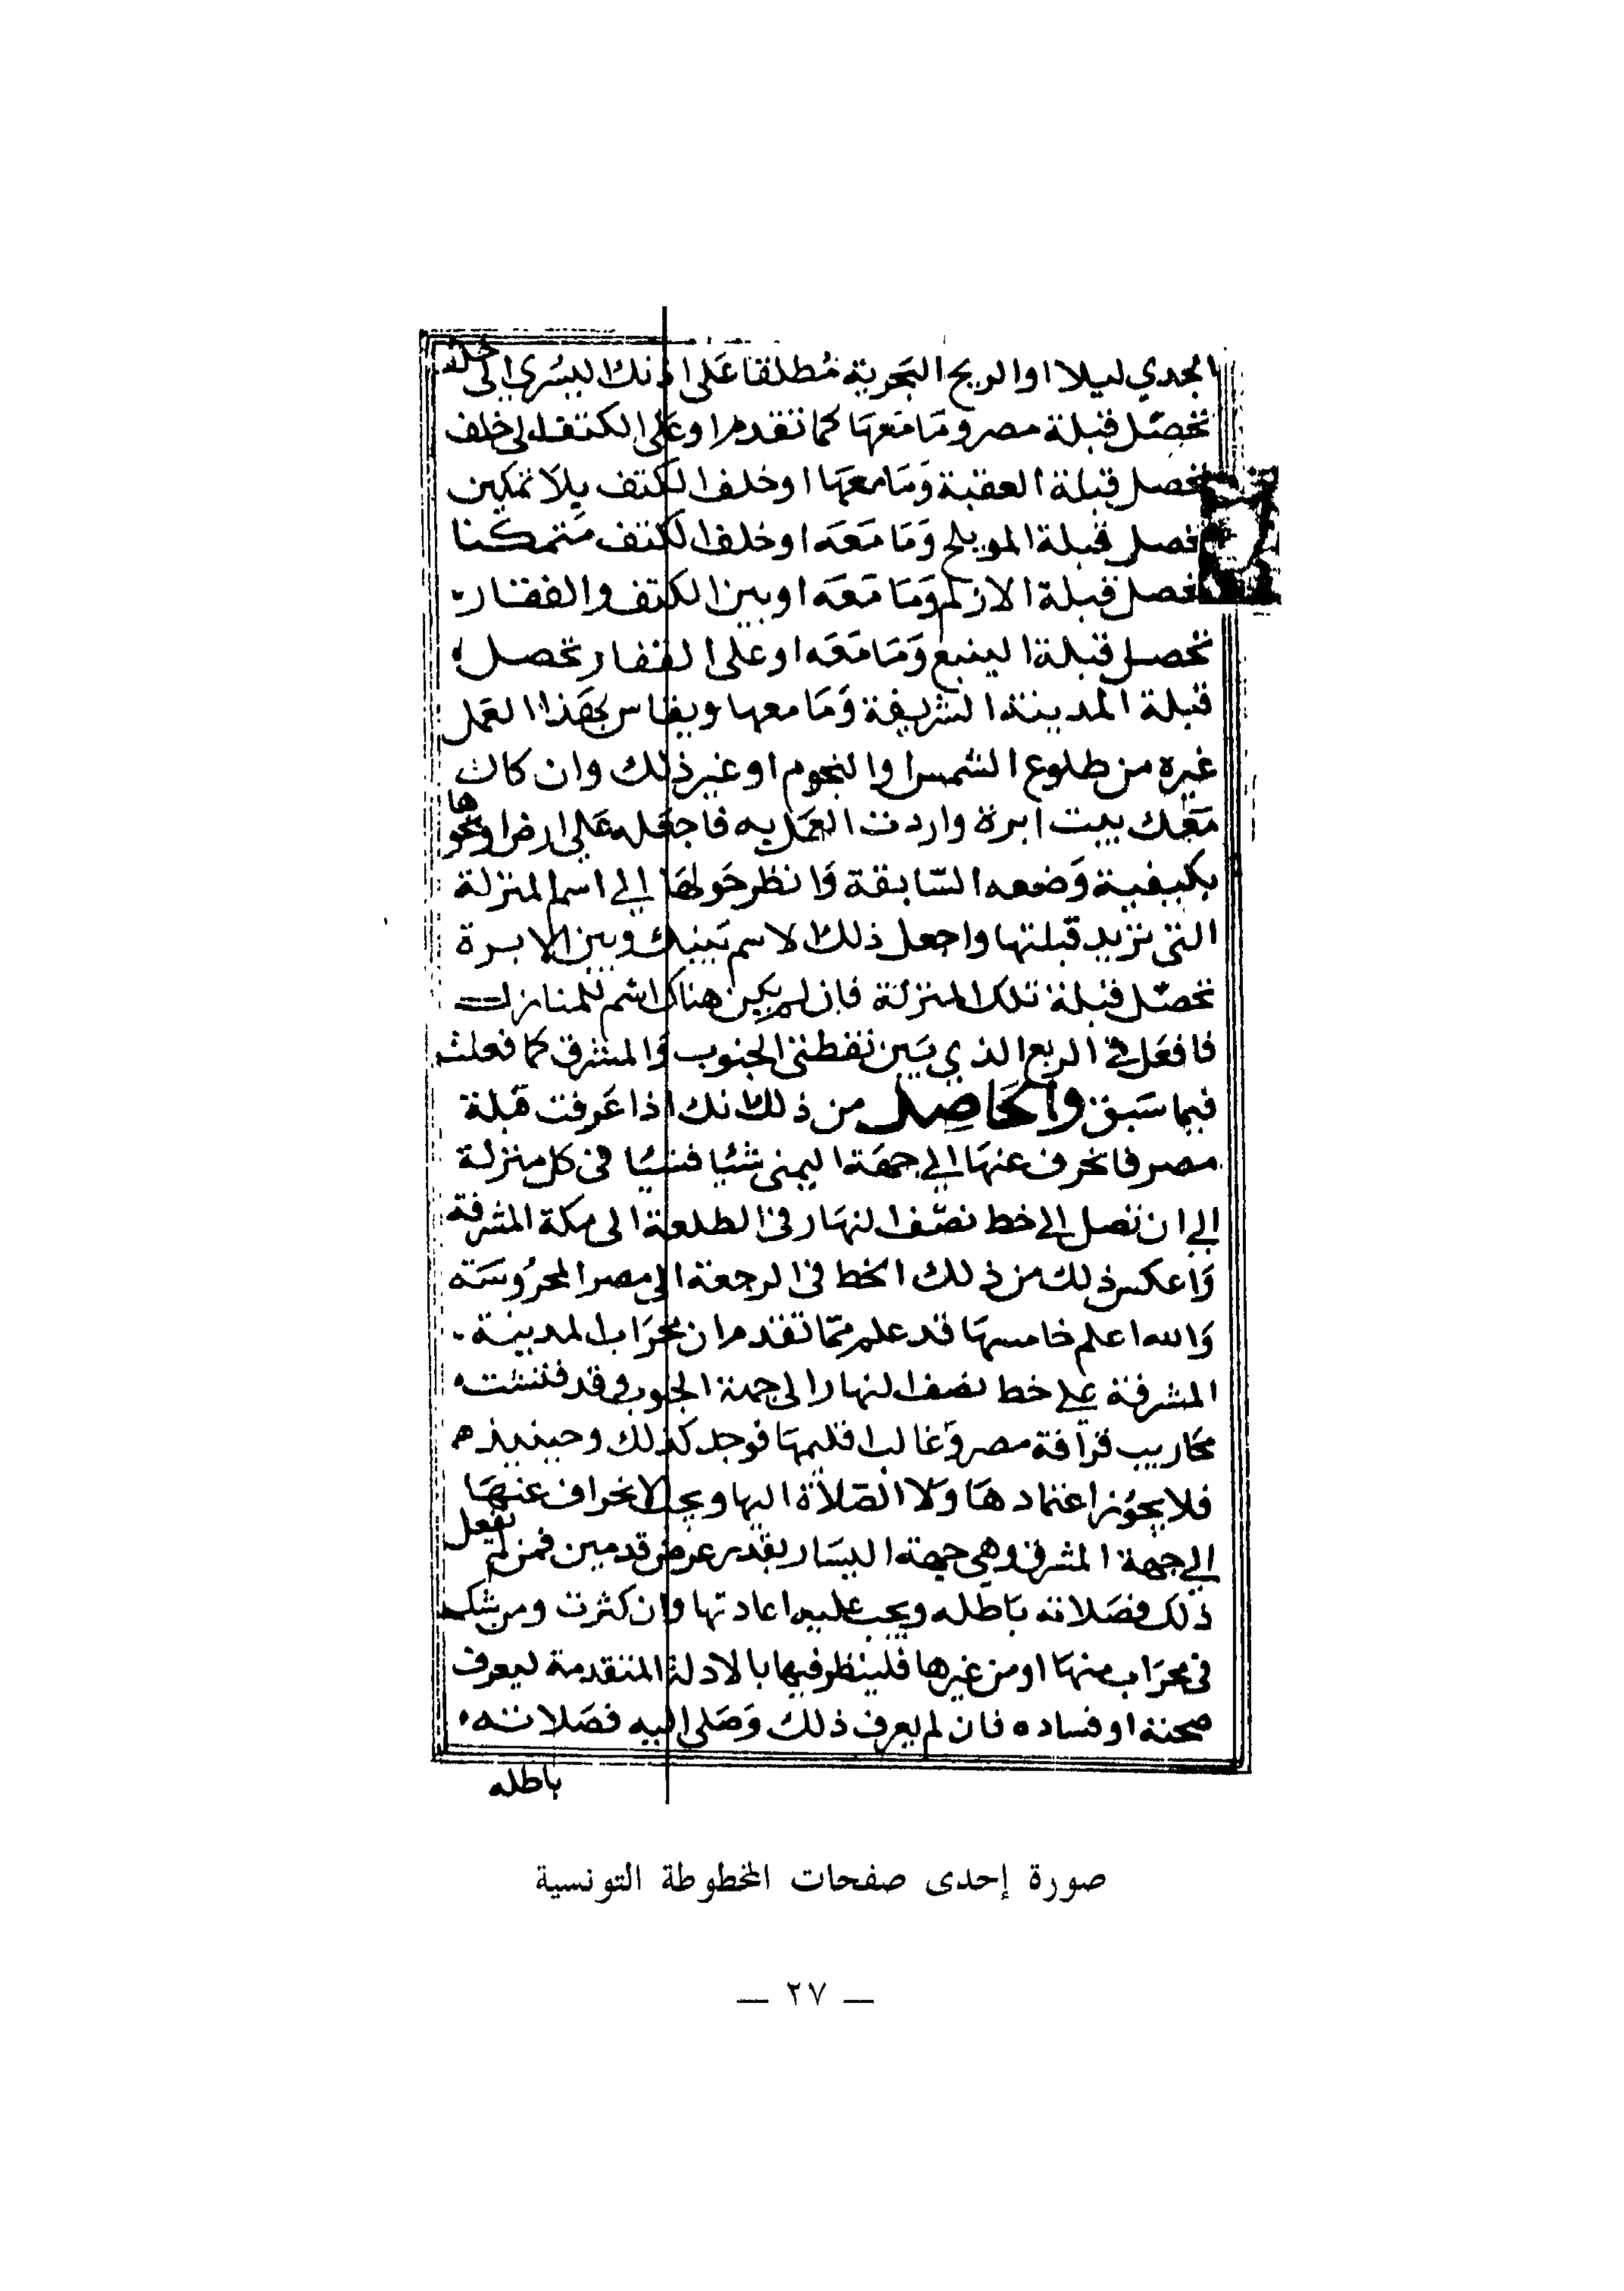 الجدي ليلا او الريح البحرية مطلقا على اذنك اليسري الى خلف
تحصل قبلة مصر وما معها كما تقدم او على الكتف الى خلف
تحصل قبلة العقبة وما معها او خلف الكتف بلا تمكين
تحصل قبلة المويلح وما معه او خلف الكتف متمكنا
تحصل قبلة الازلم وما معه او بين الكتف والفقار
تحصل قبلة الينبع وما معه او على الفقار تحصل
قبلة المدينة الشريفة وما معها ويقاس بهذا العمل
غيره من طلوع الشمس او النجوم او غير ذلك وان كان
معك بيت ابرة واردت العمل به فاجعله على ارض او نحوها
بكيفية وضعه السابقة وانظر حولها الي اسم المنزلة
التي تريد قبلتها واجعل ذلك الاسم بينك وبين الابرة
تحصل قبلة تلك المنزلة فان لم يكن هناك اسم للمنازل
فافعل في الربع الذي بين نقطتي الجنوب والمشرق كما فعلت
فيما سبق والحاصل من ذلك انك اذا عرفت قبلة
مصر فانحرف عنها الي جهة اليمني شيا فشيا في كل منزلة
الي ان تصل الي خط نصف النهار في الطلعة الى مكة المشرفة
واعكس ذلك من ذلك الخط في الرجعة الى مصر المحروسة
والله اعلم خامسها قد علم مما تقدم ان محراب المدينة
المشرفة علي خط نصف النهار الى جهة الجنوب وقد فتشت
محاريب قرافة مصر وغالب اقليمها فوجد كذلك وحينيذ
فلا يجوز اعتمادها ولا الصلاة اليها ويجب الانحراف عنها
الي جهة المشرق وهي جهة اليسار بقدر عرض قدمين فمن لم يفعل
ذلك فصلاته باطله ويجب عليه اعادتها وان كثرت ومن شك
في محراب منها او من غيرها فلينظر فيها بالادلة المتقدمة ليعرف
صحته او فساده فان لم يعرف ذلك وصلى اليه فصلاته
باطله
صورة إحدى صفحات المخطوطة التونسية
— ٢٧ —